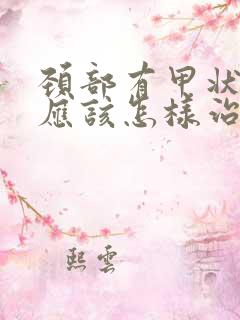 頚部有甲状
應該怎樣治
熙雲